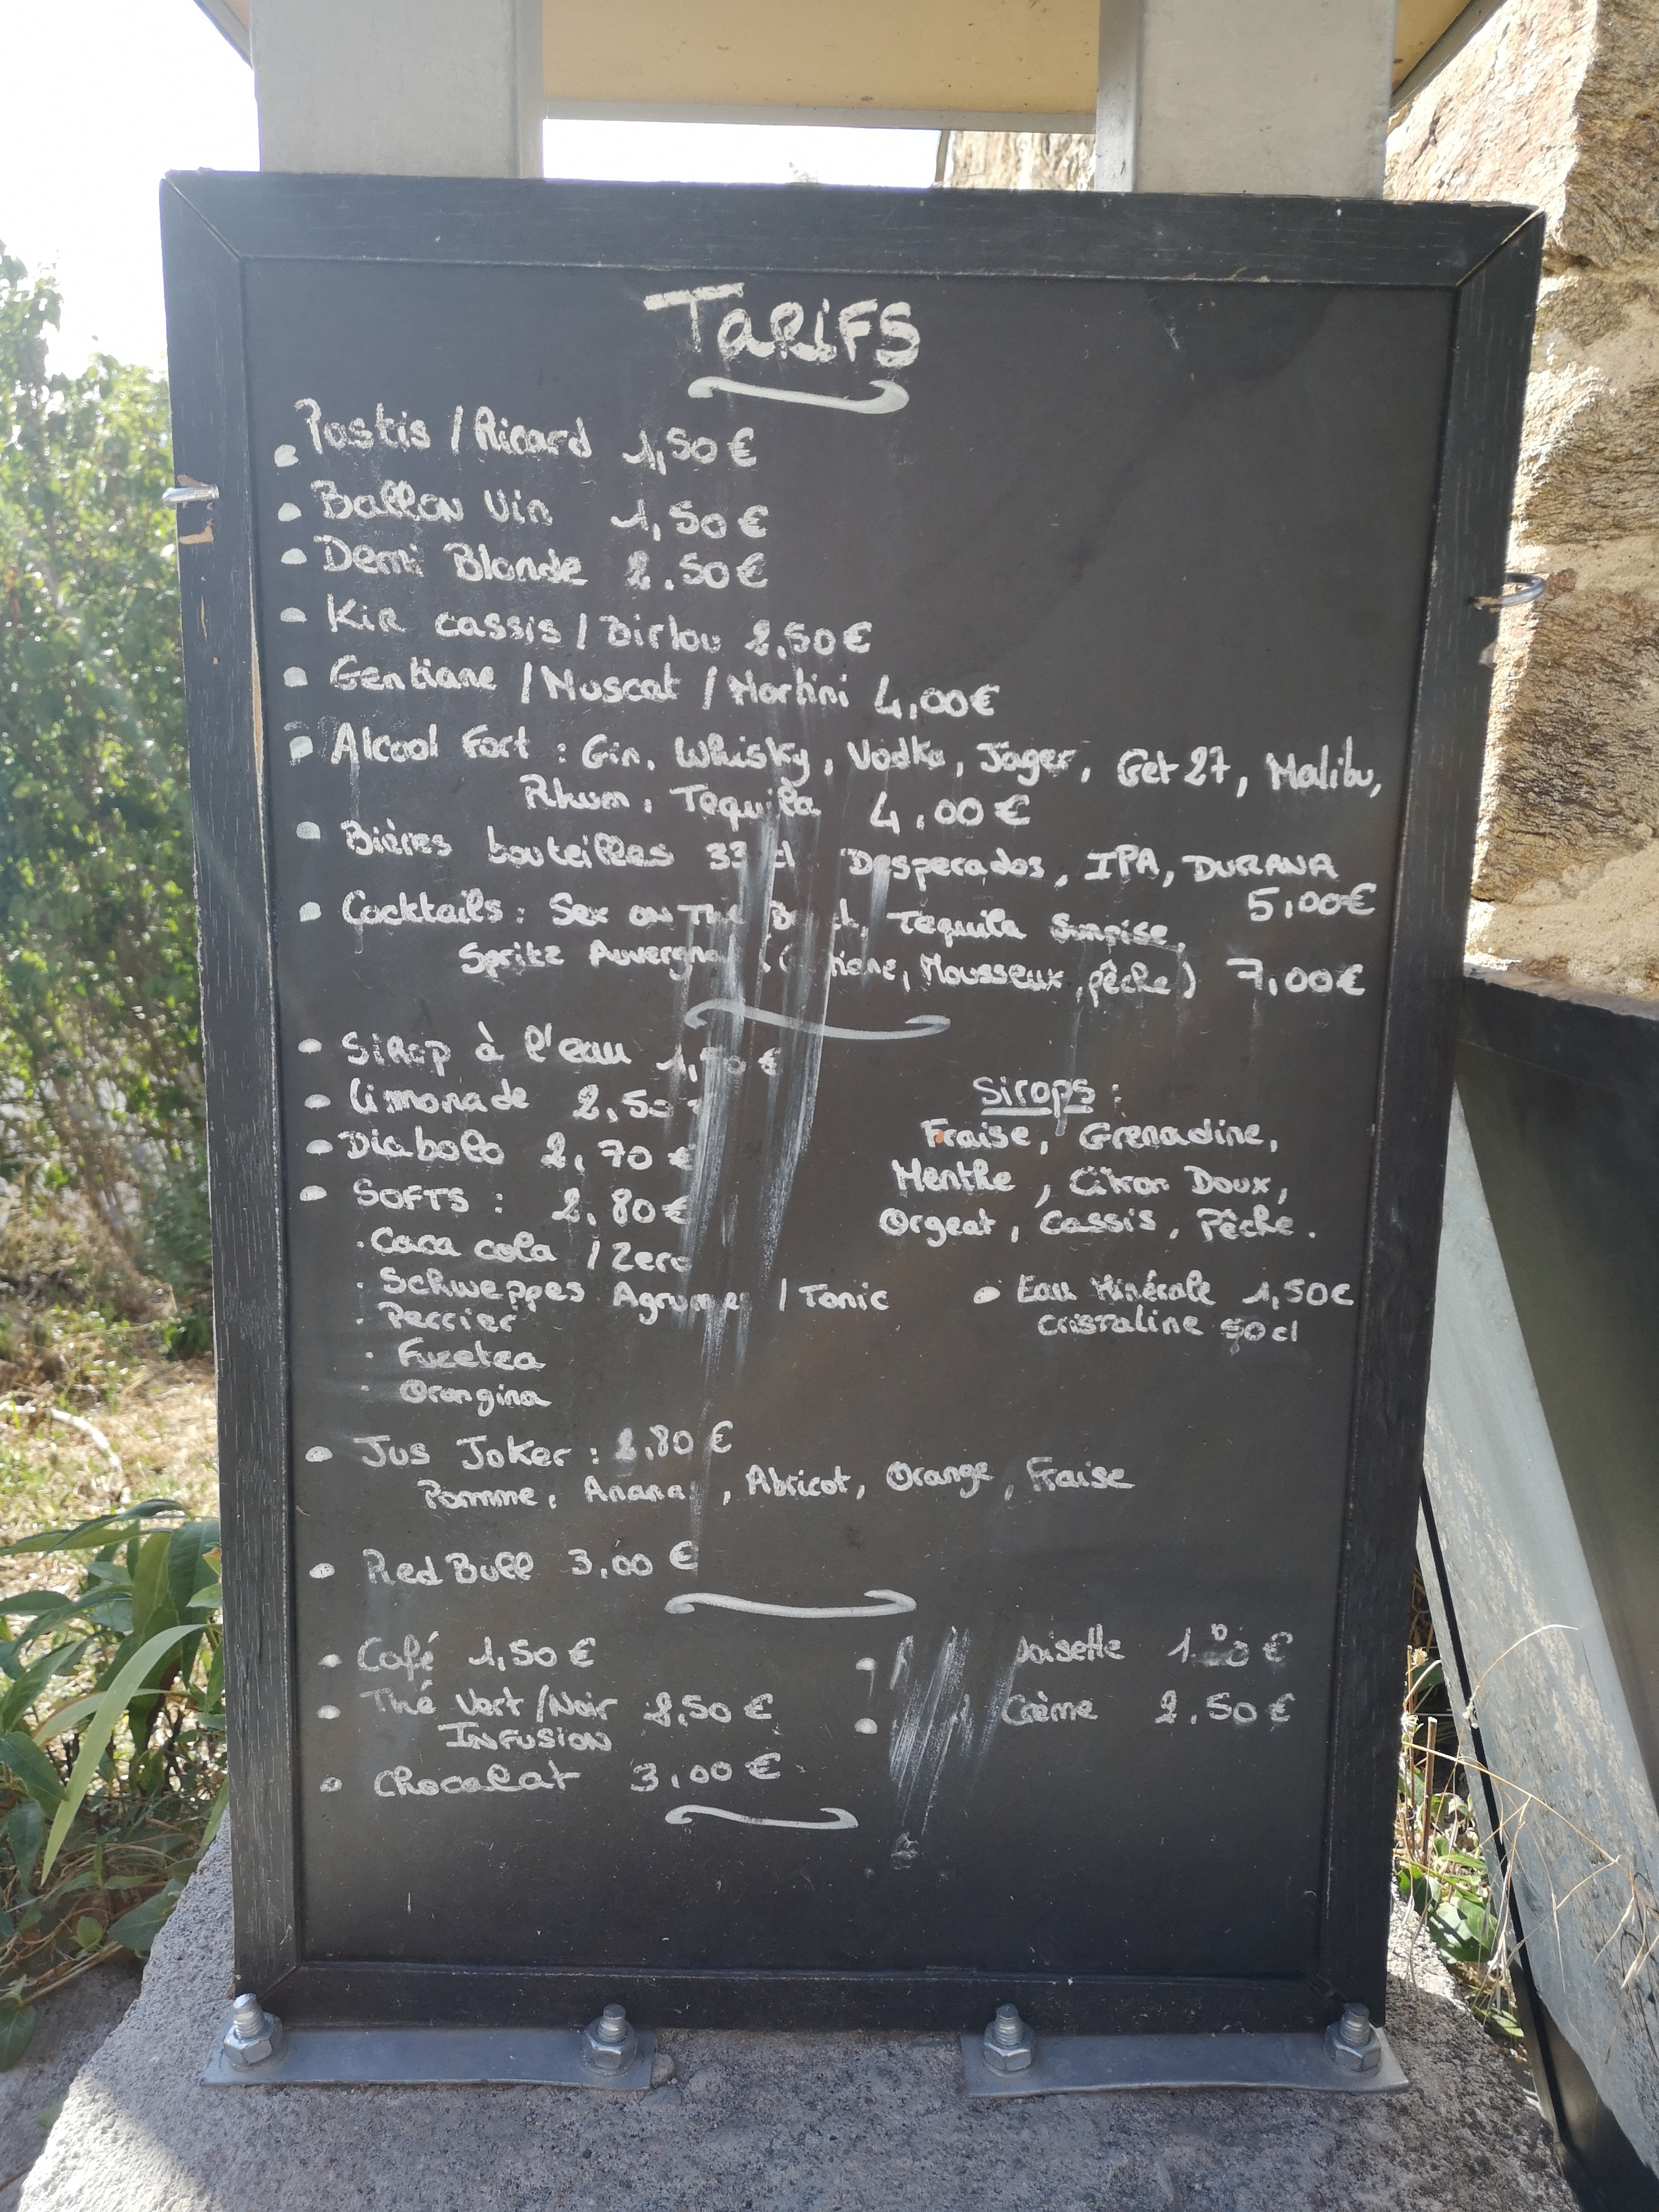 TaRiFS
Pastis / Ricard 1,50 €
Ballon Vin 1,50 €
Demi Blonde 2.50 €
Kir cassis / Birlou 2,50 €
Gentiane / Muscat / Martini 4,00 €
Alcool Fort : Gin, Whisky, Vodka, Jager, Get 27, Malibu,
Rhum, Tequila 4,00 €
Bières bouteilles 33 cl Desperados, IPA, DURANA
5,00 €
Cocktails : Sex on The, Tequila Sunrise,
Spritz (, Mousseux, pêche) 7,00 €
Sirop à l'eau
limonade 2,50
Diabolo 2,70 €
SOFTS : 2,80 €
. Coca cola / Zero
. Schweppes Agrume / Tonic
. Perrier
. Fuzetea
. Orangina
Sirops :
Fraise, Grenadine,
Menthe, Citron Doux,
Orgeat, Cassis, Pêche.
Eau Minérale 1,50 €
Cristaline 50 cl
Jus Joker : 2,80 €
Pomme, Ananas, Abricot, Orange, Fraise
Red Bull 3,00 €
Café 1,50 €
Thé Vert / Noir 2,50 €
INFUSION
Chocolat 3,00 €
Noisette
Crème 2.50 €